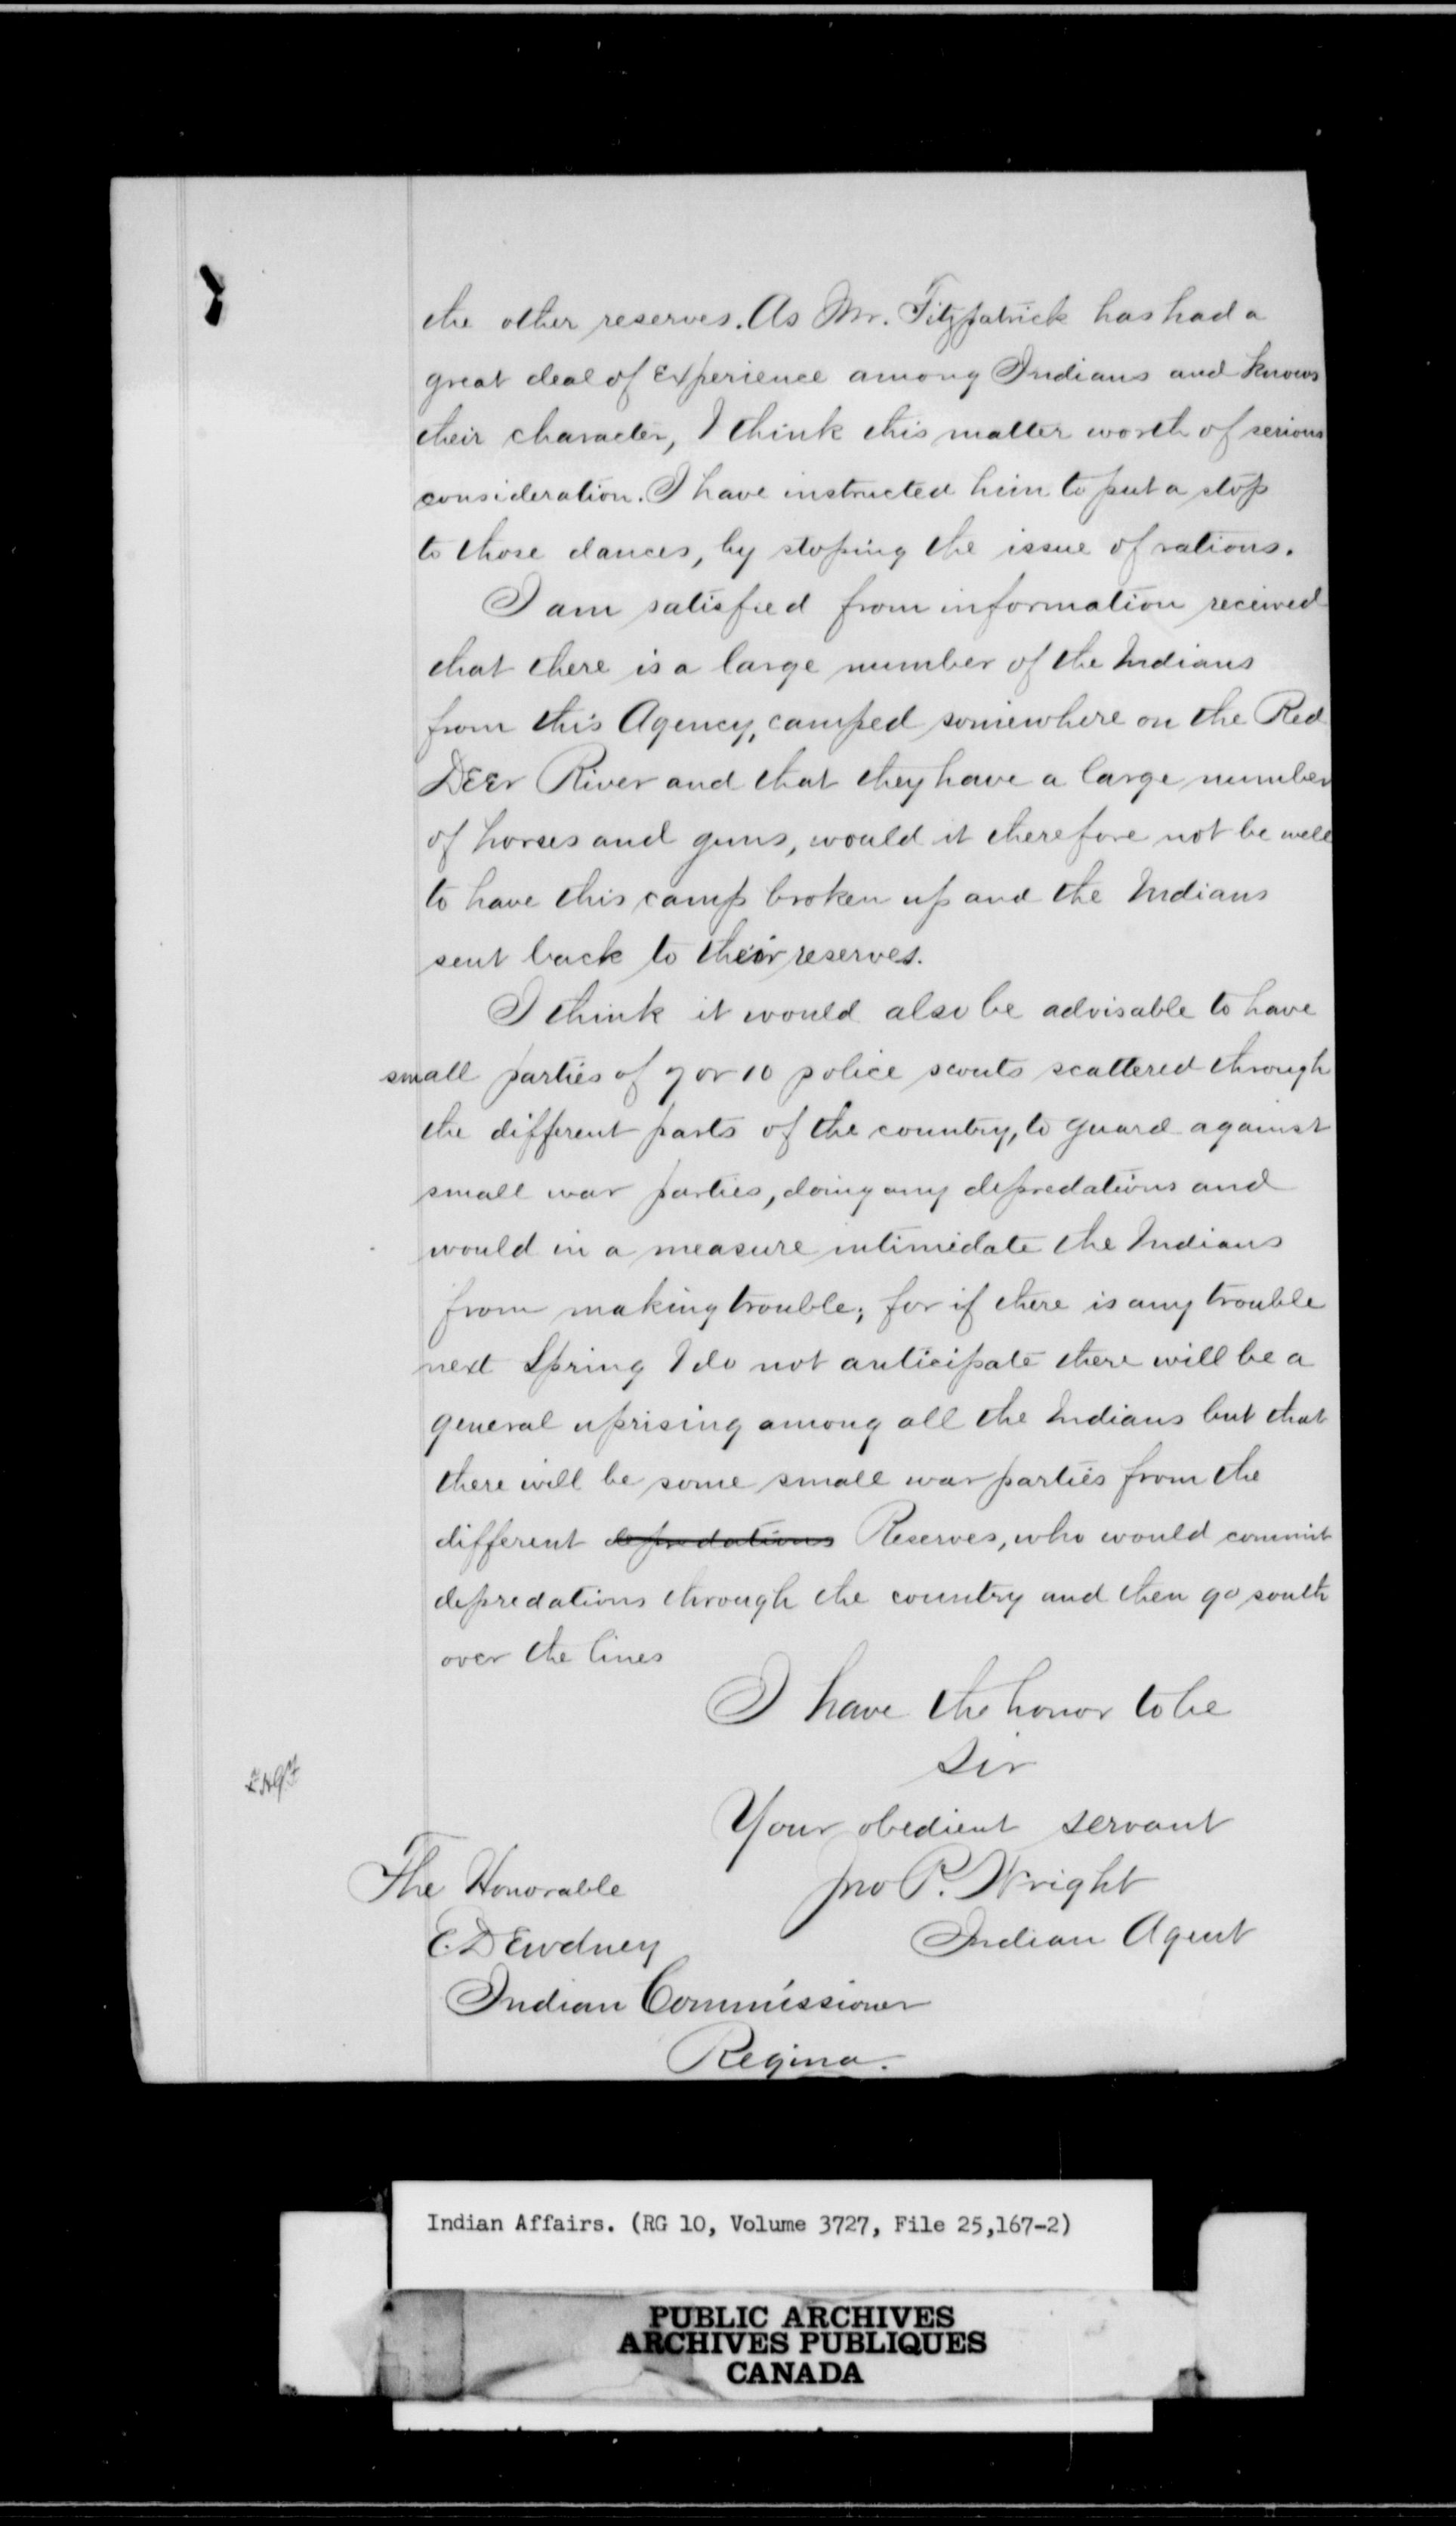 the other reserves. As Mr. Fitzpatrick has had a
great deal of Experience among Indians and knows
their character, I think this matter worth of serious
consideration. I have instructed him to put a stop
to those dances, by stoping the issue of rations.
I am satisfied from information received
that there is a large number of the Indians
from this Agency, camped somewhere on the Red
Deer River and that they have a large number
of horses and guns, would it therefore not be well
to have this camp broken up and the Indians
sent back to their reserves.
I think it would also be advisable to have
small parties of 7 or 10 police scouts scattered through
the different parts of the country, to guard against
small war parties, doing any depredations and
would in a measure intimidate the Indians
from making trouble; for if there is any trouble
next Spring I do not anticipate there will be a
general uprising among all the Indians but that
there will be some small war parties from the
different depredations Reserves, who would commit
depredations through the country and then go south
over the lines
I have the honor to be
Sir
Your obedient servant
Jno P. Wright
Indian Agent
The Honorable
E. Dewdney
Indian Commissioner
Regina.
Indian Affairs. (RG 10, Volume 3727, File 25,167-2)
PUBLIC ARCHIVES
ARCHIVES PUBLIQUES
CANADA